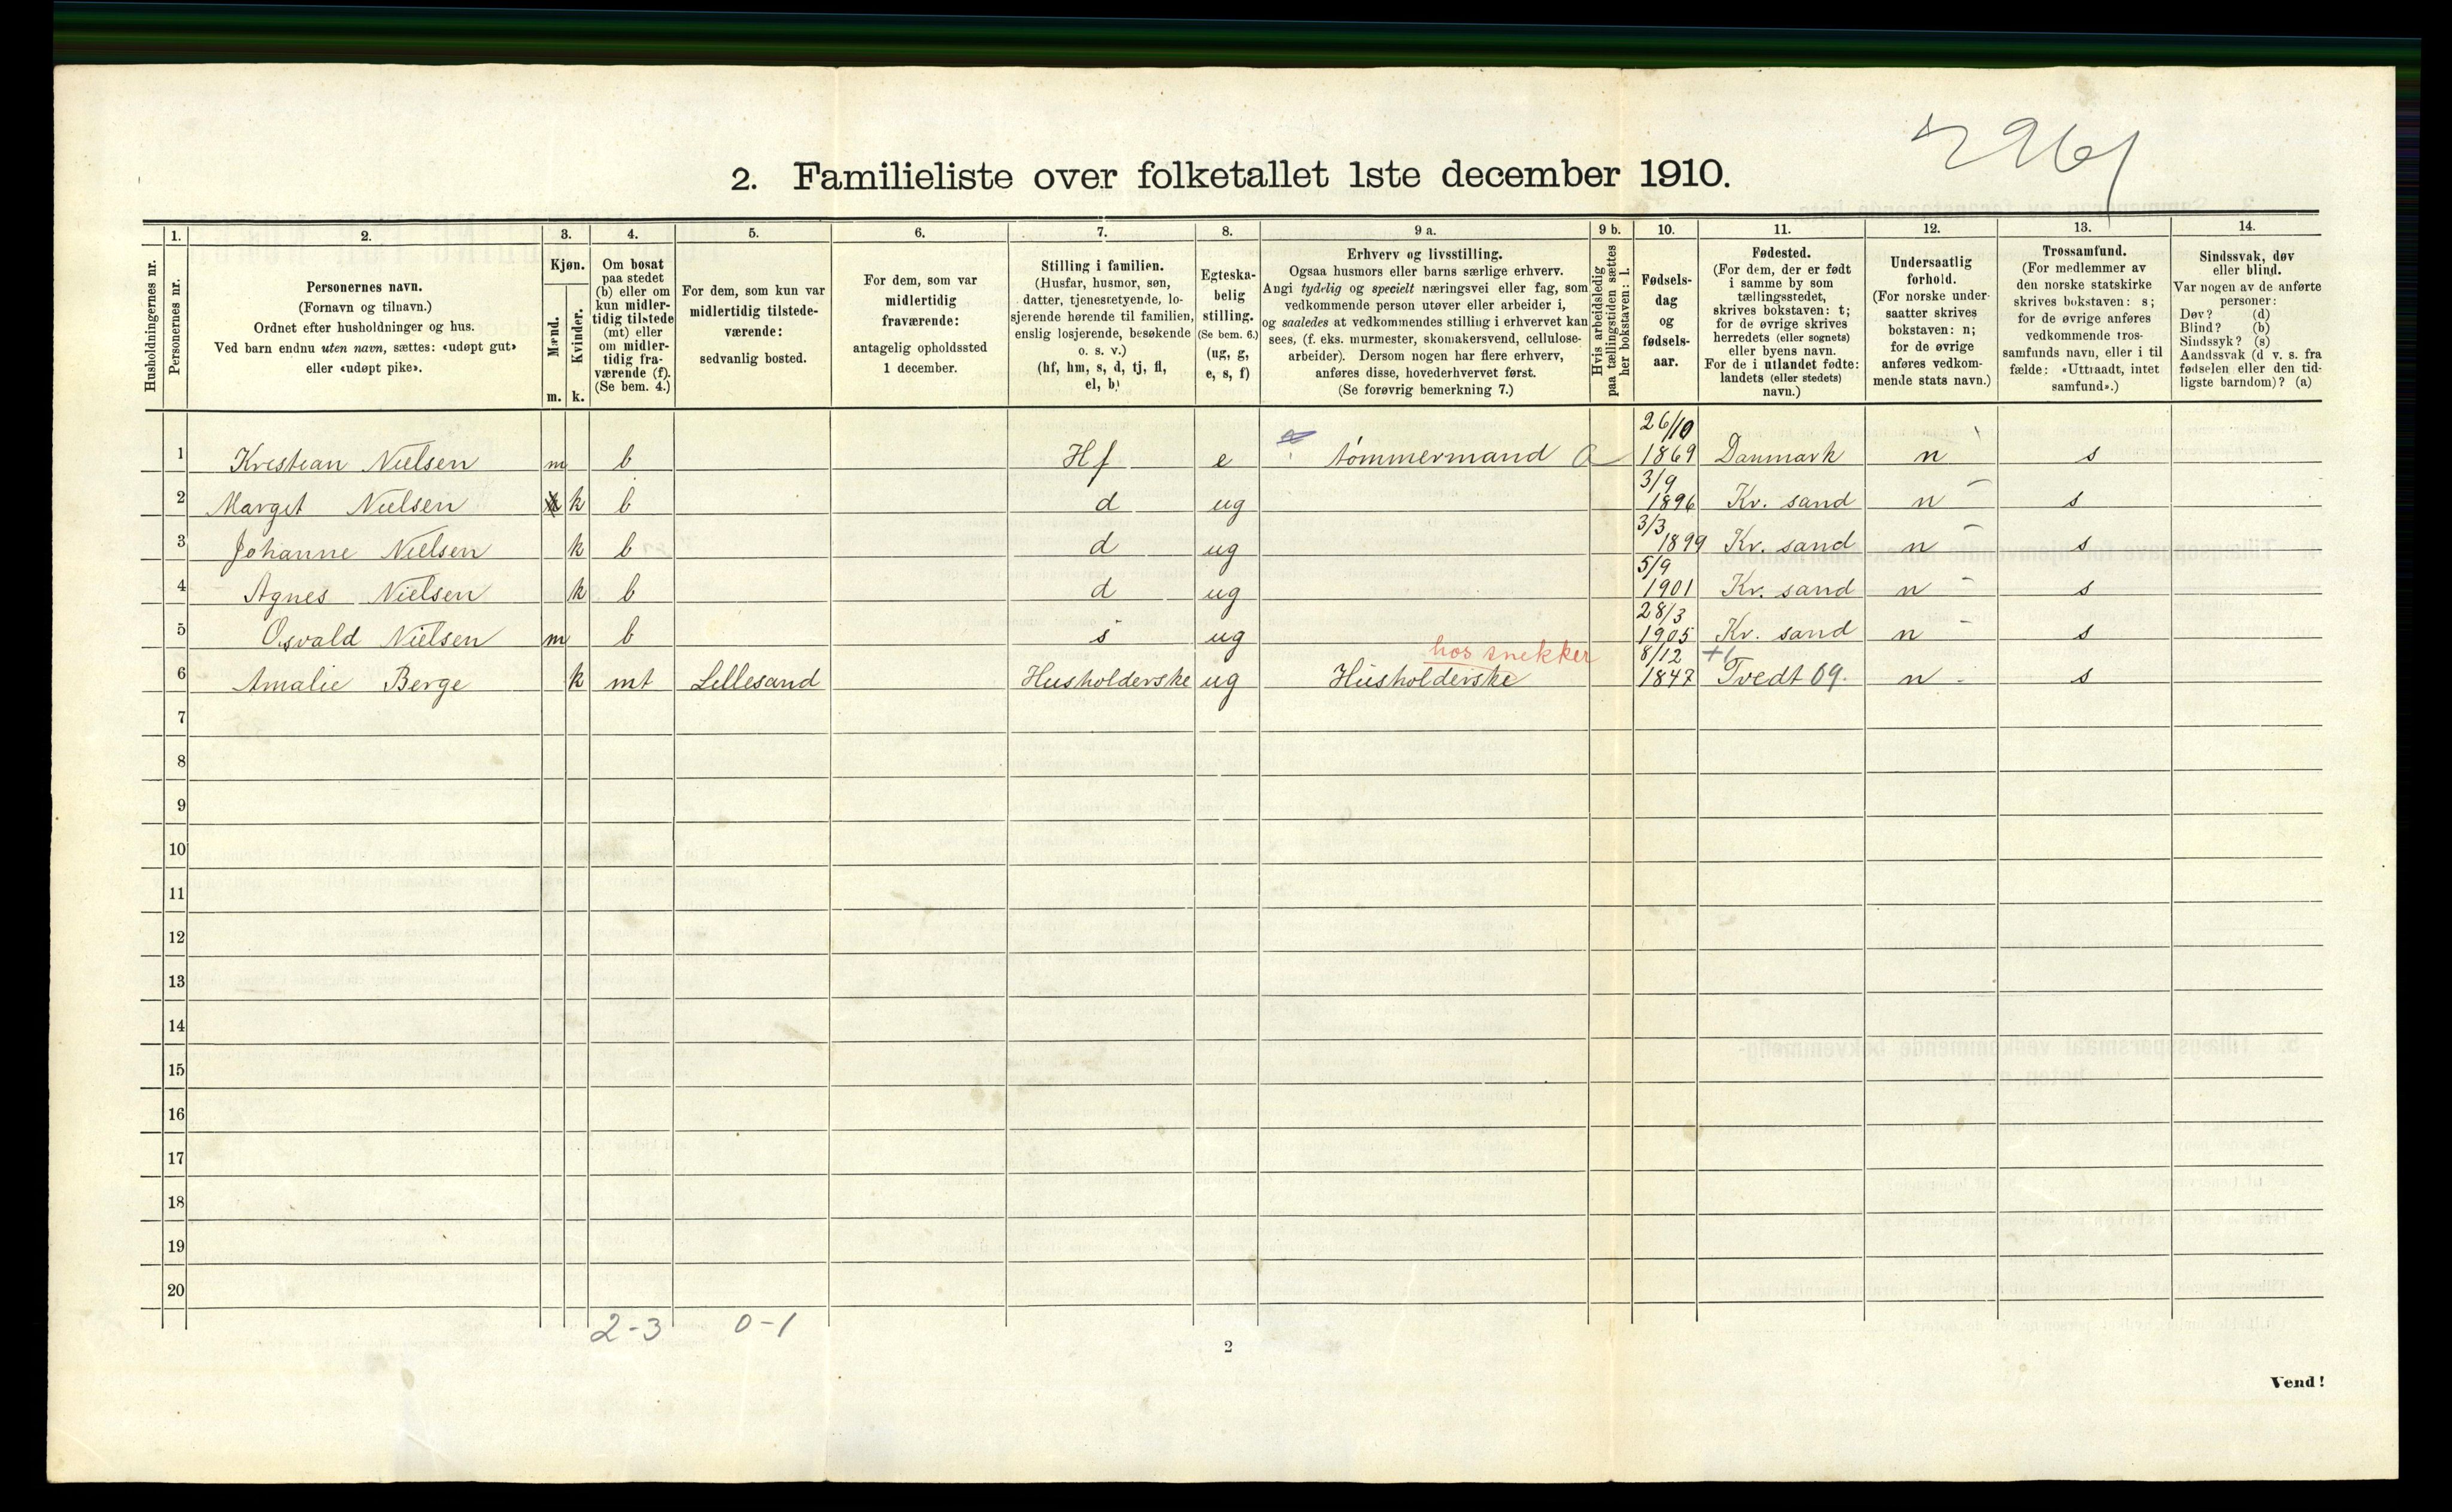 2. Familieliste over folketallet 1ste december 1910.
Husholdningernes nr.
1. Personernes nr.
2. Personernes navn.
(Fornavn og tilnavn.)
Ordnet efter husholdninger og hus.
Ved barn endnu uten navn, sættes: «udøpt gut»
eller «udøpt pike».
3. Kjøn.
Mænd. m.
Kvinder. k.
4. Om bosat
paa stedet
(b) eller om
kun midler-
tidig tilstede
(mt) eller
om midler-
tidig fra-
værende (f).
(Se bem. 4.)
5. For dem, som kun var
midlertidig tilstede-
værende:
sedvanlig bosted.
6. For dem, som var
midlertidig
fraværende:
antagelig opholdssted
1 december.
7. Stilling i familien.
(Husfar, husmor, søn,
datter, tjenestetyende, lo-
sjerende hørende til familien,
enslig losjerende, besøkende
o. s. v.)
(hf, hm, s, d, tj, fl,
el, b)
8. Egteska-
belig
stilling.
(Se bem. 6.)
(ug, g,
e, s, f)
9 a. Erhverv og livsstilling.
Ogsaa husmors eller barns særlige erhverv.
Angi tydelig og specielt næringsvei eller fag, som
vedkommende person utøver eller arbeider i,
og saaledes at vedkommendes stilling i erhvervet kan
sees, (f. eks. murmester, skomakersvend, cellulose-
arbeider). Dersom nogen har flere erhverv,
anføres disse, hovederhvervet først.
(Se forøvrig bemerkning 7.)
9 b. Hvis arbeidsledig
paa tællingstiden sættes
her bokstaven: l.
10. Fødsels-
dag
og
fødsels-
aar.
11. Fødested.
(For dem, der er født
i samme by som
tællingsstedet,
skrives bokstaven: t;
for de øvrige skrives
herredets (eller sognets)
eller byens navn.
For de i utlandet fødte:
landets (eller stedets)
navn.)
12. Undersaatlig
forhold.
(For norske under-
saatter skrives
bokstaven: n;
for de øvrige
anføres vedkom-
mende stats navn.)
13. Trossamfund.
(For medlemmer av
den norske statskirke
skrives bokstaven: s;
for de øvrige anføres
vedkommende tros-
samfunds navn, eller i til
fælde: «Uttraadt, intet
samfund».)
14. Sindssvak, døv
eller blind.
Var nogen av de anførte
personer:
Døv? (d)
Blind? (b)
Sindssyk? (s)
Aandssvak (d v. s. fra
fødselen eller den tid-
ligste barndom)? (a)
1 Kristian Nielsen m b Hf e tømmermand a 26/10 1869 Danmark n s
2 Margit Nielsen k b d ug 3/9 1896 Kr. sand n s
3 Johanne Nielsen k b d ug 3/3 1899 Kr. sand n s
4 Agnes Nielsen k b d ug 5/9 1901 Kr. sand n s
5 Osvald Nielsen m b s ug 28/3 1905 Kr. sand n s
hos snekker
6 Amalie Berge k mt Lillesand Husholderske ug Husholderske 8/12 1847 Tvedt 09. n s
7
8
9
10
11
12
13
14
15
16
17
18
19
20
2-3 0-1
2
Vend!